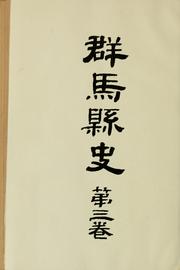 群馬縣史
第三巻